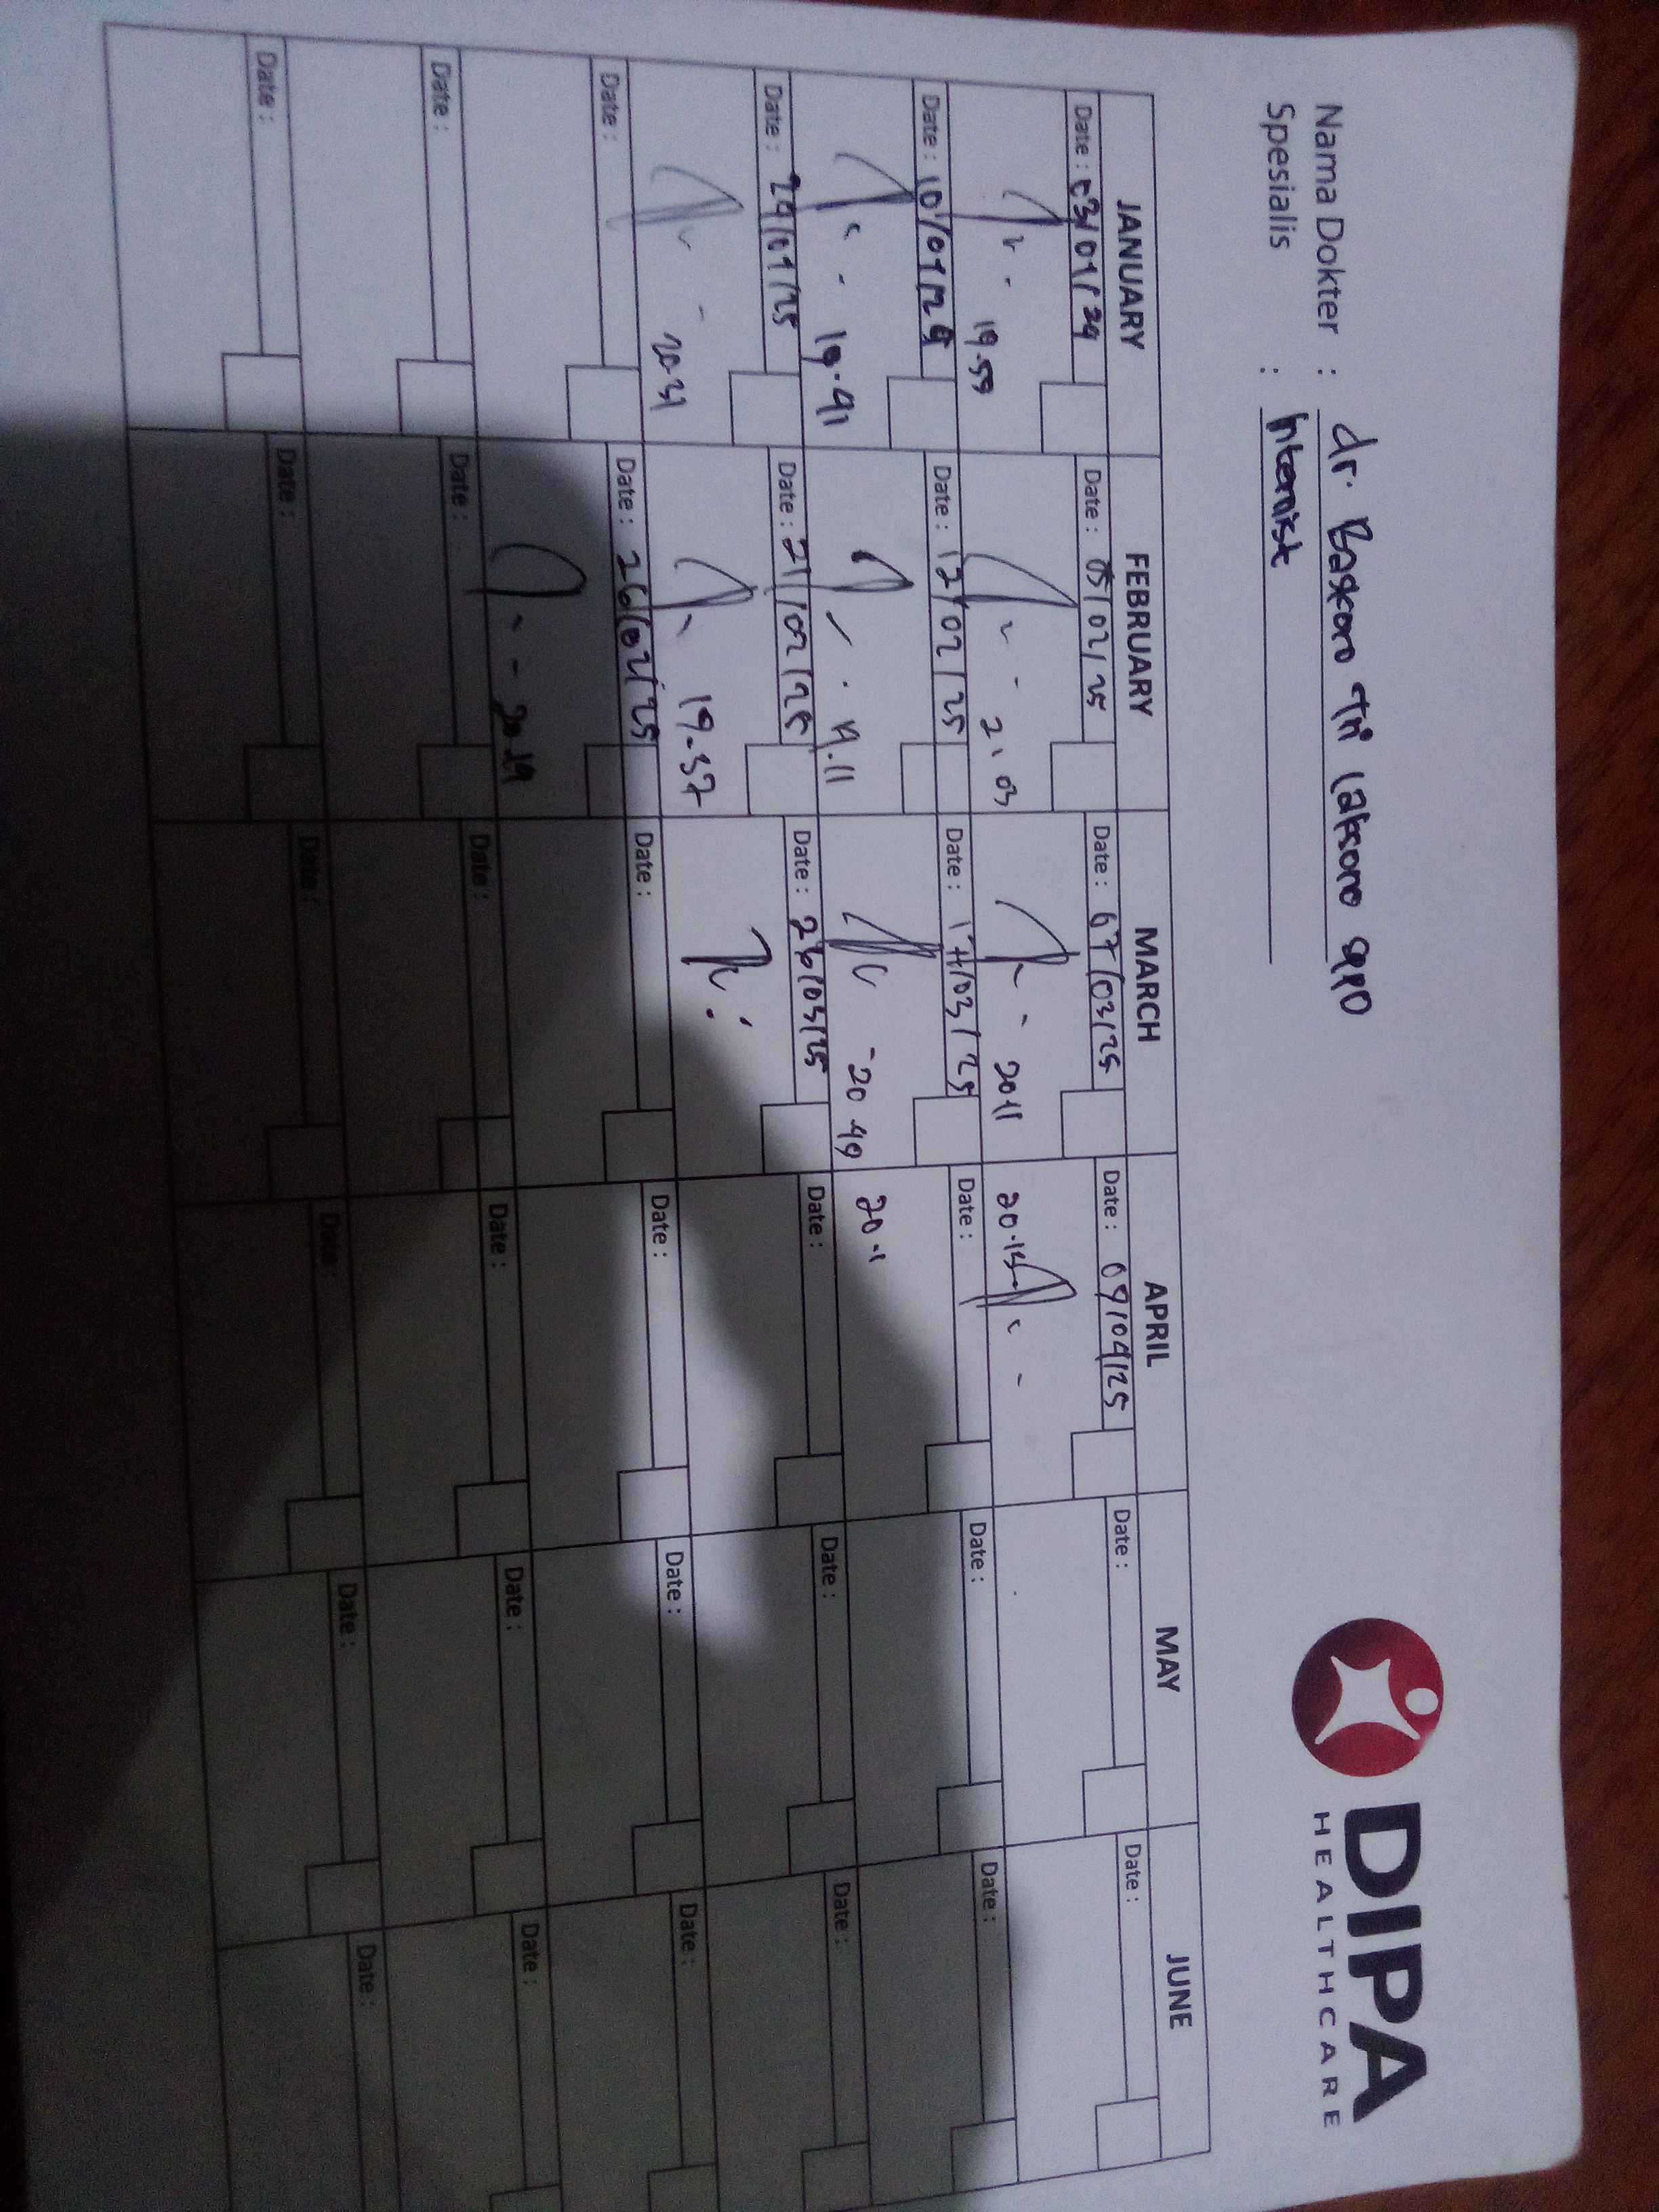 DIPA
HEALTHCARE
Nama Dokter : dr. Baskoro Tri Laksono
Spesialis : Internist
JANUARY FEBRUARY MARCH APRIL MAY JUNE
Date : 03/01/24 Date : 05/02/25 Date : 07/03/25 Date : 09/04/25 Date : Date :
19.59 21.03 2011 20.15
Date : 10/01/25 Date : 12/02/25 Date : 17/03/25 Date : Date : Date :
19.41 19.11 20 49 20.11
Date : 29/01/25 Date : 21/02/25 Date : 26/03/25 Date : Date : Date :
20.31 19.37
Date : Date : 26/02/25 Date : Date : Date : Date :
20.19
Date : Date : Date : Date : Date : Date :
Date : Date : Date : Date : Date : Date :